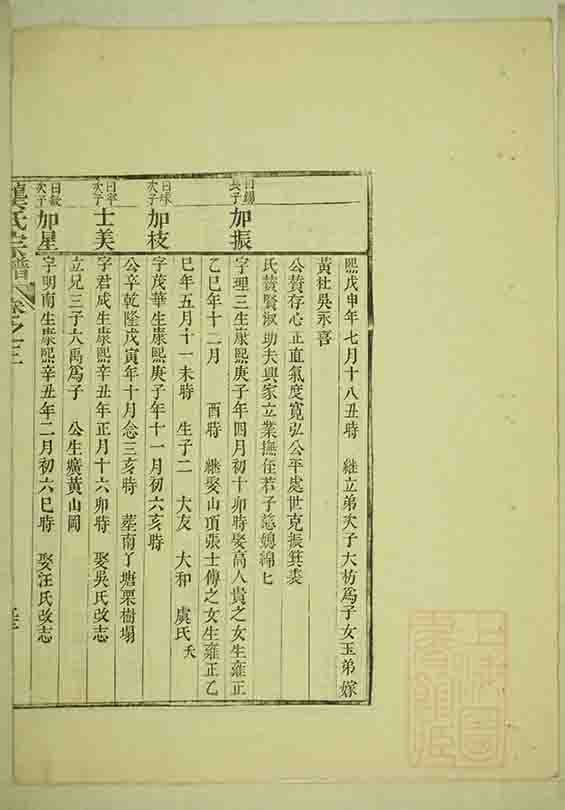 熙戊申年七月十八丑時 継立弟次子大枋為子女玉弟嫁
黃社吳永喜
公賛存心正直氣度寛弘公平處世克振箕裘
氏賛賢淑助夫興家立業撫侄若子慈媳綿匕
長子
加振
字理三生康熙庚子年四月初十卯時娶高人貴之女生雍正
乙巳年十二月 酉時 継娶山頂張士傳之女生雍正乙
巳年五月十一未時 生子二 大友 大和 虞氏夭
次子
加枝
字茂華生康熙庚子年十一月初六亥時
公卒乾隆戊寅年十月念三亥時 塟南了塘栗樹塌
曰寧次子
士美
字君成生康熙辛丑年正月十六卯時 娶吳氏改志
立兄三子六禹為子 公生廣黃山岡
次子
加星
字明南生康熙辛丑年二月初六巳時 娶汪氏改志
氏宗譜
卷之三
上海圖書館藏